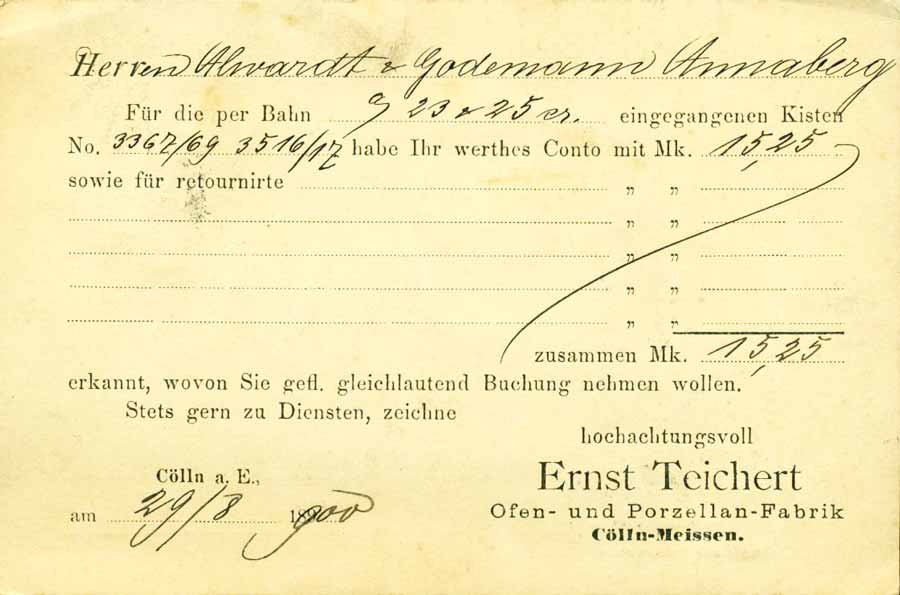 Herren Alwardt & Godemann Annaberg
Für die per Bahn 23 & 25 cr. eingegangenen Kisten
No. 3367/69 3516/17 habe Ihr werthes Conto mit Mk. 15,25
sowie für retournirte „ „
„ „
„ „
„ „
„ „
zusammen Mk. 15,25
erkannt, wovon Sie gefl. gleichlautend Buchung nehmen wollen.
Stets gern zu Diensten, zeichne
hochachtungsvoll
Ernst Teichert
Ofen- und Porzellan-Fabrik
Cölln-Meissen.
Cölln a. E.,
am 29/8 1900